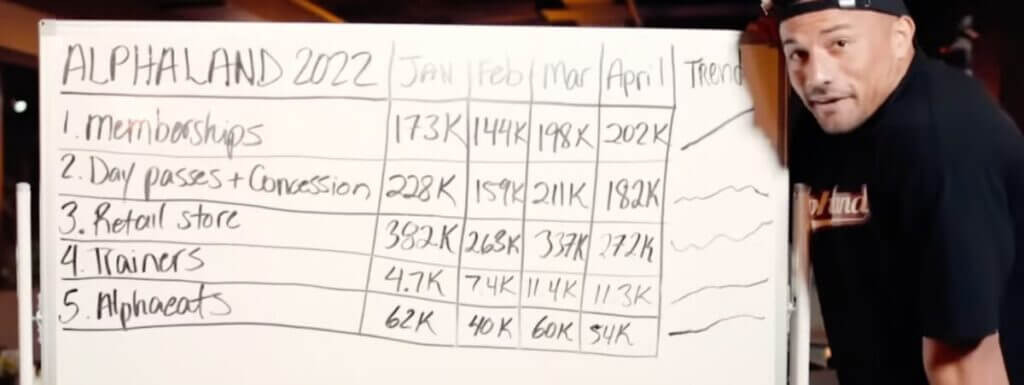 ALPHALAND 2022 JAN Feb Mar April Trend
1. Memberships 173K 144K 198K 202K
2. Day passes + Concession 228K 159K 211K 182K
3. Retail store 382K 268K 337K 272K
4. Trainers 4.7K 7.4K 11.4K 11.3K
5. Alphaeats 62K 40K 60K 54K